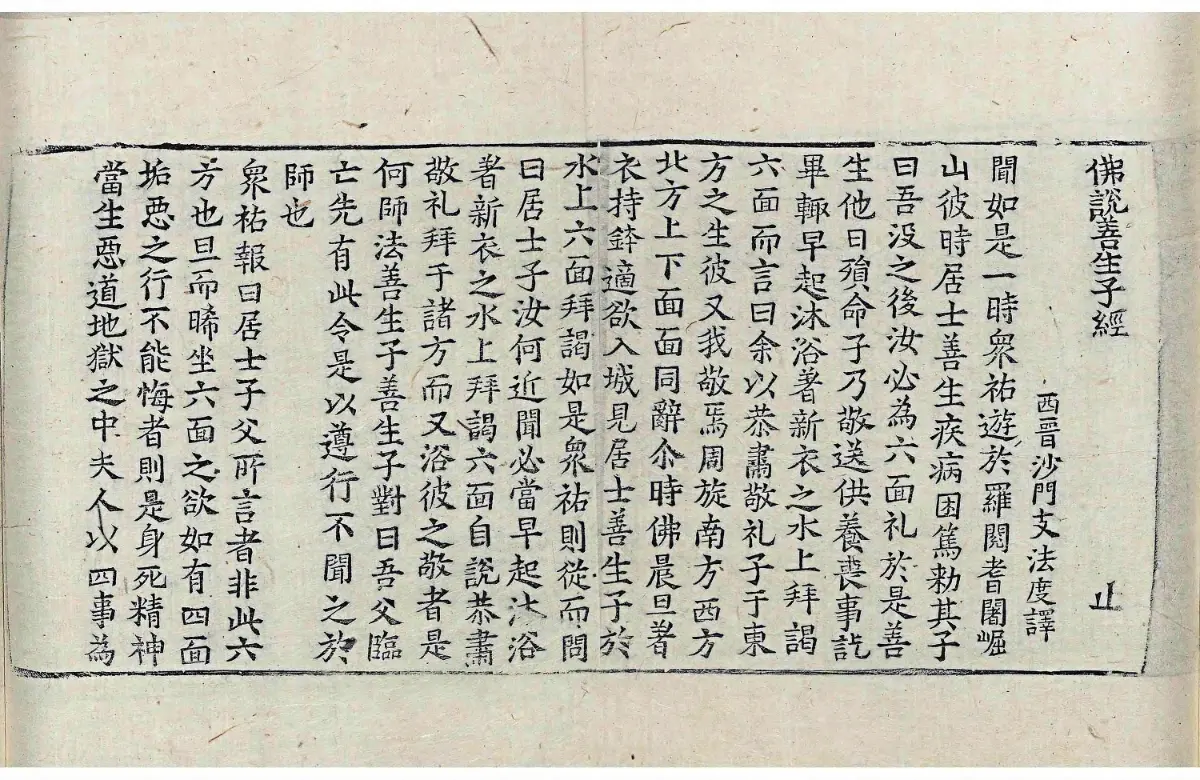 佛說善生子經 止
西晉沙門支法度譯
聞如是一時眾祐遊於羅閱耆闍崛
山彼時居士善生疾病困篤勑其子
曰吾没之後汝必為六面礼於是善
生他日殞命子乃敬送供養喪事訖
畢輙早起沐浴著新衣之水上拜謁
六面而言曰余以恭肅敬礼子于東
方之生彼又我敬焉周旋南方西方
北方上下面面同辭尒時佛晨旦著
衣持鉢適欲入城見居士善生子於
水上六面拜謁如是眾祐則從而問
曰居士子汝何近聞必當早起沐浴
著新衣之水上拜謁六面自說恭肅
敬礼拜于諸方而又浴彼之敬者是
何師法善生子善生子對曰吾父臨
亡先有此令是以遵行不聞之於
師也
眾祐報曰居士子父所言者非此六
方也旦而晞坐六面之欲如有四面
垢惡之行不能悔者則是身死精神
當生惡道地獄之中夫人以四事為